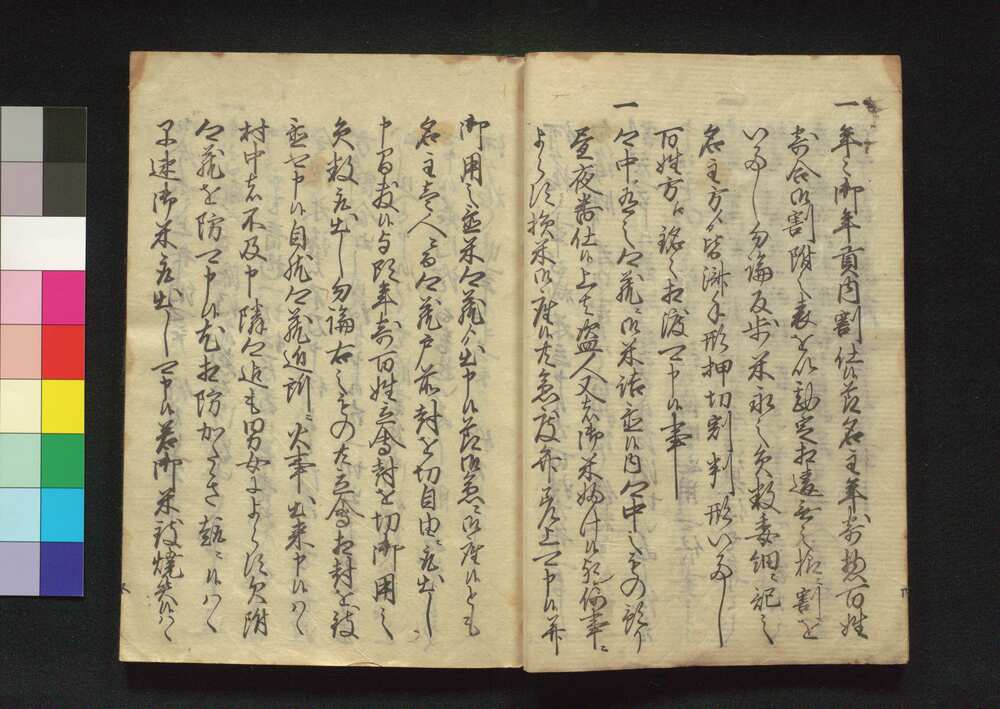 一年々御年貢内割仕候節名主年寄惣百姓
寄合御割附之表を以勘定相違無之様ニ割を
いたし勿論反歩米永之員数委細ニ記之
名主方ゟ皆済手形押切割判形いたし
百姓方江銘々相渡可申候事
一郷中有之郷蔵ニ御米詰置候内郷中之もの
昼夜番仕候上者盗人又者御米
よらす損米御座候ハヽ急度弁差上可申候并
御用之置米郷蔵ゟ出申候節御急ニ御座候とも
名主壱人ニ而郷蔵戸前封を切自由ニ取出し
申間敷候与頭年寄百姓立会封を切御用之
員数取出し勿論右之もの共立会相封を致
置可申候自然郷蔵近所ニ火事出来申候ハヽ
村中者不及申隣郷迄も男女によらす欠附
郷蔵を防可申候尤相防かたき躰ニ候ハヽ
早速御米取出し可申候若御米致焼失候ハヽ